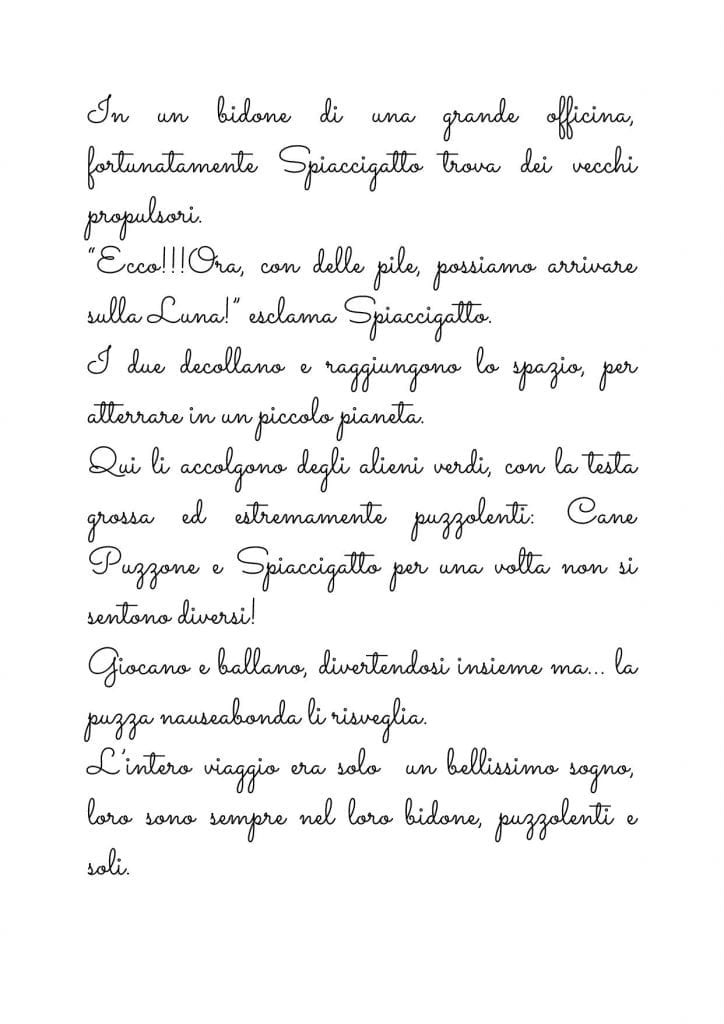 In un bidone di una grande officina,
fortunatamente Spiaccigatto trova dei vecchi
propulsori.
"Ecco!!!Ora, con delle pile, possiamo arrivare
sulla Luna!" esclama Spiaccigatto.
I due decollano e raggiungono lo spazio, per
atterrare in un piccolo pianeta.
Qui li accolgono degli alieni verdi, con la testa
grossa ed estremamente puzzolenti: Cane
Puzzone e Spiaccigatto per una volta non si
sentono diversi!
Giocano e ballano, divertendosi insieme ma... la
puzza nauseabonda li risveglia.
L'intero viaggio era solo un bellissimo sogno,
loro sono sempre nel loro bidone, puzzolenti e
soli.